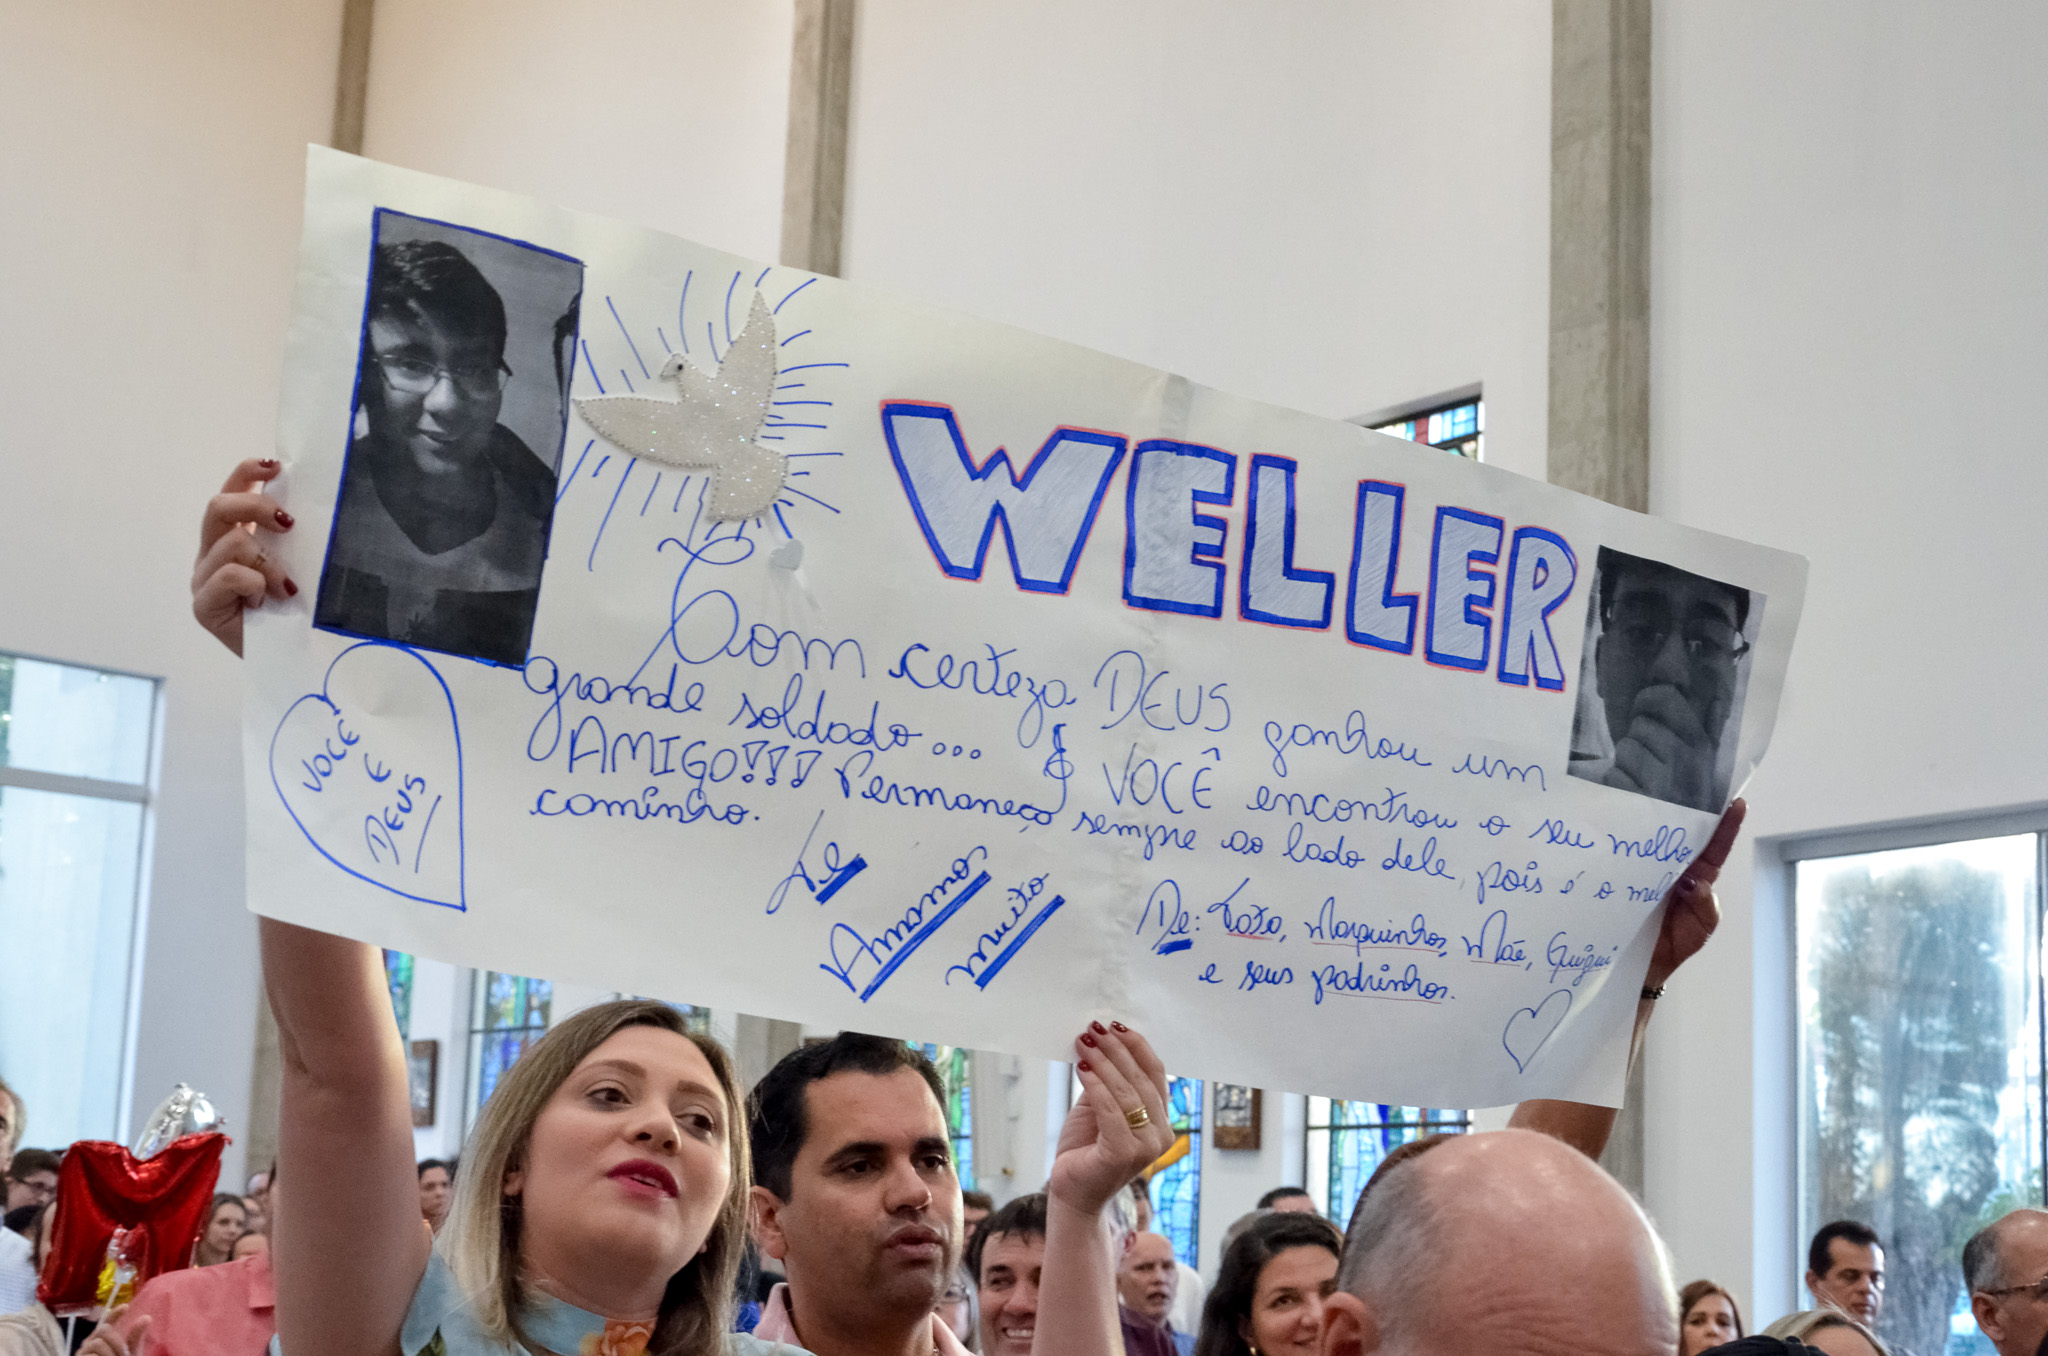 WELLER
Com certeza DEUS ganhou um
grande soldado... E VOCÊ encontrou o seu melho
AMIGO!!! Permaneça sempre ao lado dele, pois é o mel
caminho.
VOCÊ
E
DEUS
Te
Amamos
muito
De: Tata, Marquinhos, Mãe, Guigui
e seus padrinhos.